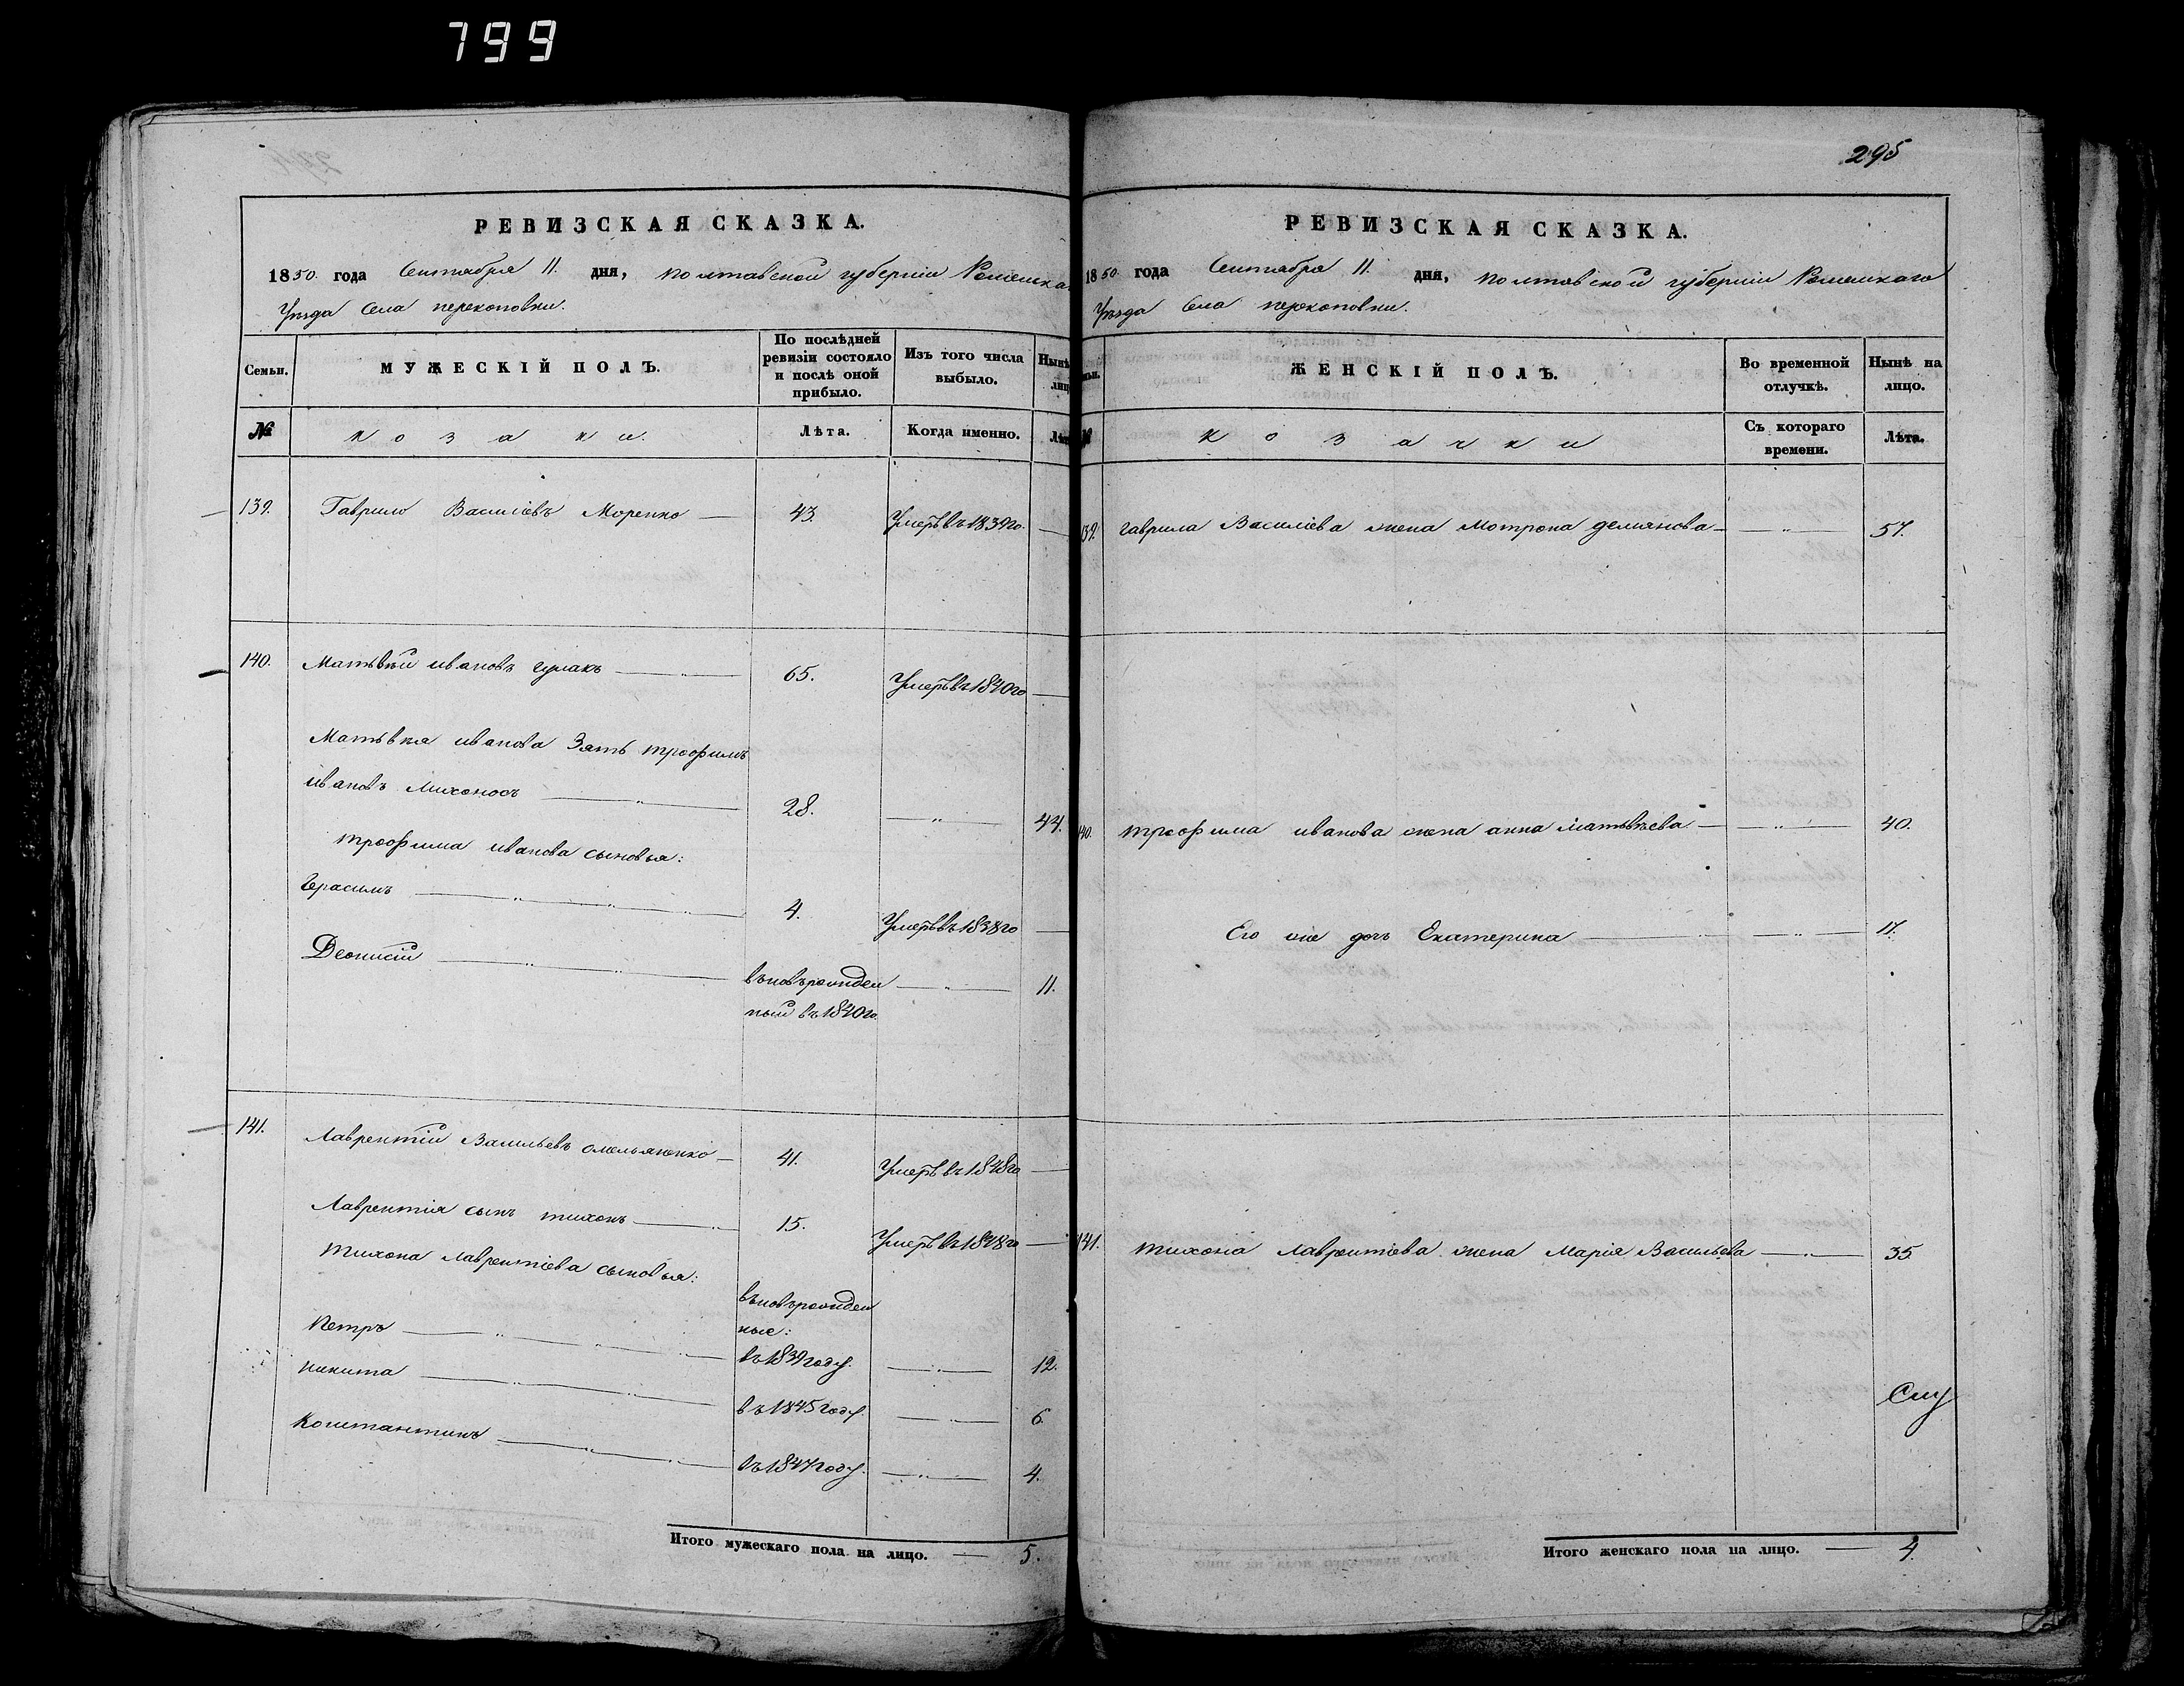 799
РЕВИЗСКАЯ СКАЗКА.
1850 года Сентября 11. дня, полтавской губерніи Роменска
Уѣзда Села перекоповки.
Семьи.
МУЖЕСКІЙ ПОЛЪ.
По послѣдней ревизіи состояло и послѣ оной прибыло.
Изъ того числа выбыло.
Нынѣ
лиц
№
козаки.
Лѣта.
Когда именно.
Лѣт
139. Гаврило Василіевъ Моренко — 43. Умерѣ въ 1839го —
140. Матьвѣй ивановъ гулакъ — 65. Умерѣ въ 1840го —
Матьвѣя иванова Зять трофимъ
ивановъ Лихоносъ — 28. — 44.
трофима иванова сыновья:
Герасимъ — 4. Умерѣ въ 1838го —
Деонисій — въновърожден — 11.
ный въ 1840го.
141. Лаврентій Васильевъ омельяненко — 41. Умерѣ въ 1848го —
Лаврентія сынъ тихонъ — 15. Умерѣ въ 1848го —
тихона лаврентіева сыновья:
въноврожден
ные:
Петръ — въ 1839 году. — 12.
никита — въ 1845 году. — 6.
Константинъ — въ 1847 году. — 4.
Итого мужескаго пола на лицо. — 5.
295
РЕВИЗСКАЯ СКАЗКА.
1850 года Сентября 11. дня, полтавской губерніи Роменскаго
Уѣзда Села перекоповки.
ьи.
ЖЕНСКІЙ ПОЛЪ.
Во временной отлучкѣ.
Нынѣ на лицо.
№
козачки
Съ котораго времени.
Лѣта.
139. гаврила Василіева жена Мотрона демянова — 57.
140. трофима иванова жена анна матьвѣева — 40.
Его же дочь Екатерина — 17.
141. тихона лаврентіева жена Марія Васильева — 35
Слу
Итого женскаго пола на лицо. — 4.